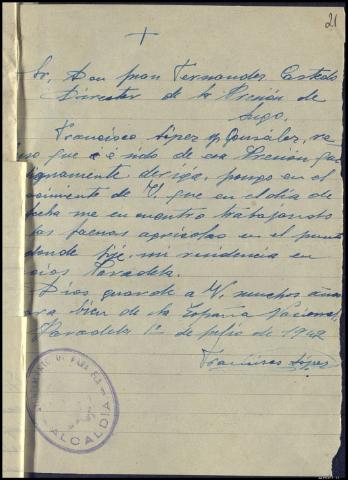 21
+
Sr. Don Juan Fernandez Castedo
Director de la Prisión de
Lugo.
Francisco López y González, re
so que é sido de esa Prisión que
ignamente dirige, pongo en el
ocimiento de V. que en el dia de
fecha me encuentro trabajando
las faenas agricolas en el punto
donde fijé mi residencia en
Paradela.
Dios guarde a V. muchos años
ara bien de la España Nacional
Paradela 1º de julio de 1942
Francisco López
ALCALDIA